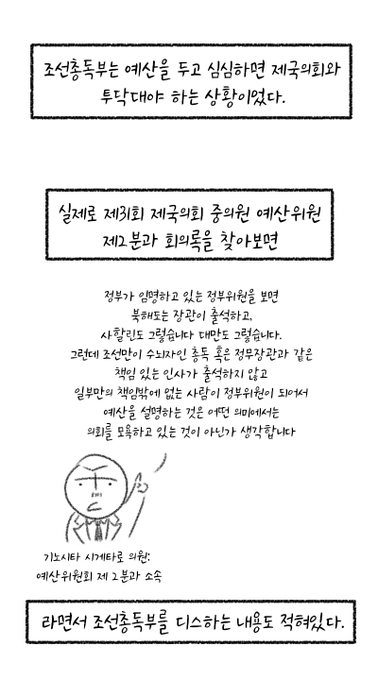 조선총독부는 예산을 두고 심심하면 제국의회와
투닥대야 하는 상황이었다.
실제로 제31회 제국의회 중의원 예산위원
제2분과 회의록을 찾아보면
정부가 임명하고 있는 정부위원을 보면
북해도는 장관이 출석하고,
사할린도 그렇습니다 대만도 그렇습니다.
그런데 조선만이 수뇌자인 총독 혹은 정무장관과 같은
책임 있는 인사가 출석하지 않고
일부만의 책임밖에 없는 사람이 정부위원이 되어서
예산을 설명하는 것은 어떤 의미에서는
의회를 모욕하고 있는 것이 아닌가 생각합니다
기노시타 시게타로 의원:
예산위원회 제 2분과 소속
라면서 조선총독부를 디스하는 내용도 적혀있다.